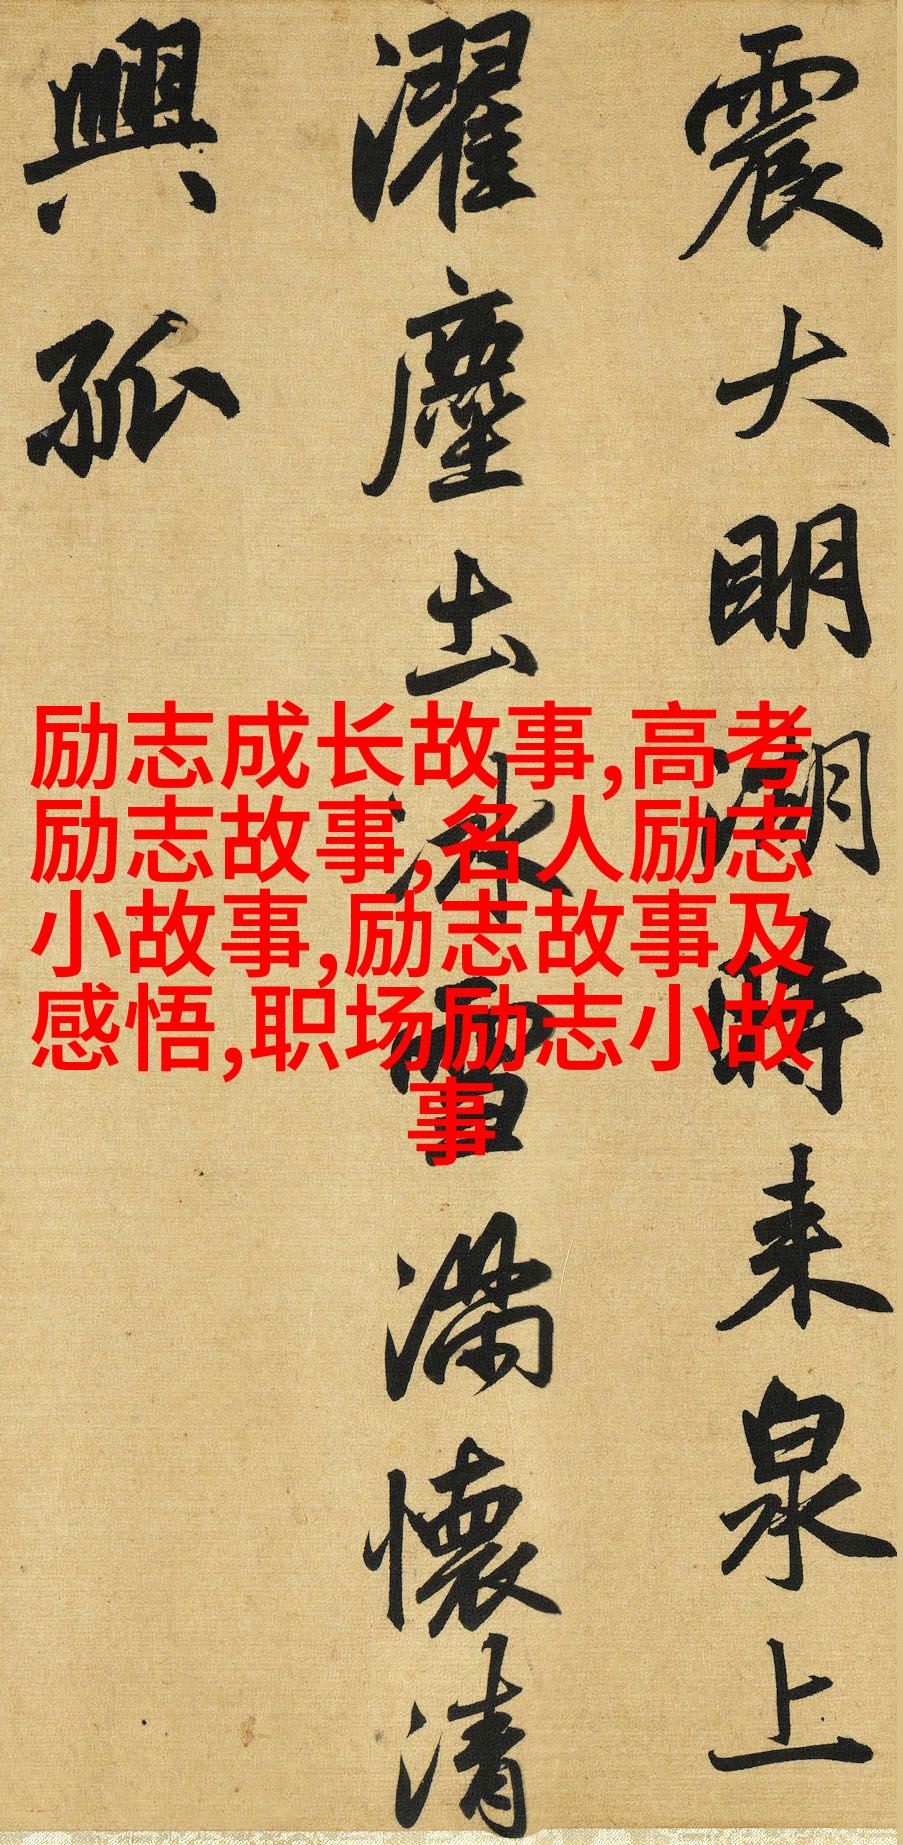 震大明湖時来泉上
濯塵土冰雪滿懷清
興孤
励志成长故事,高考
励志故事,名人励志
小故事,励志故事及
感悟,职场励志小故
事